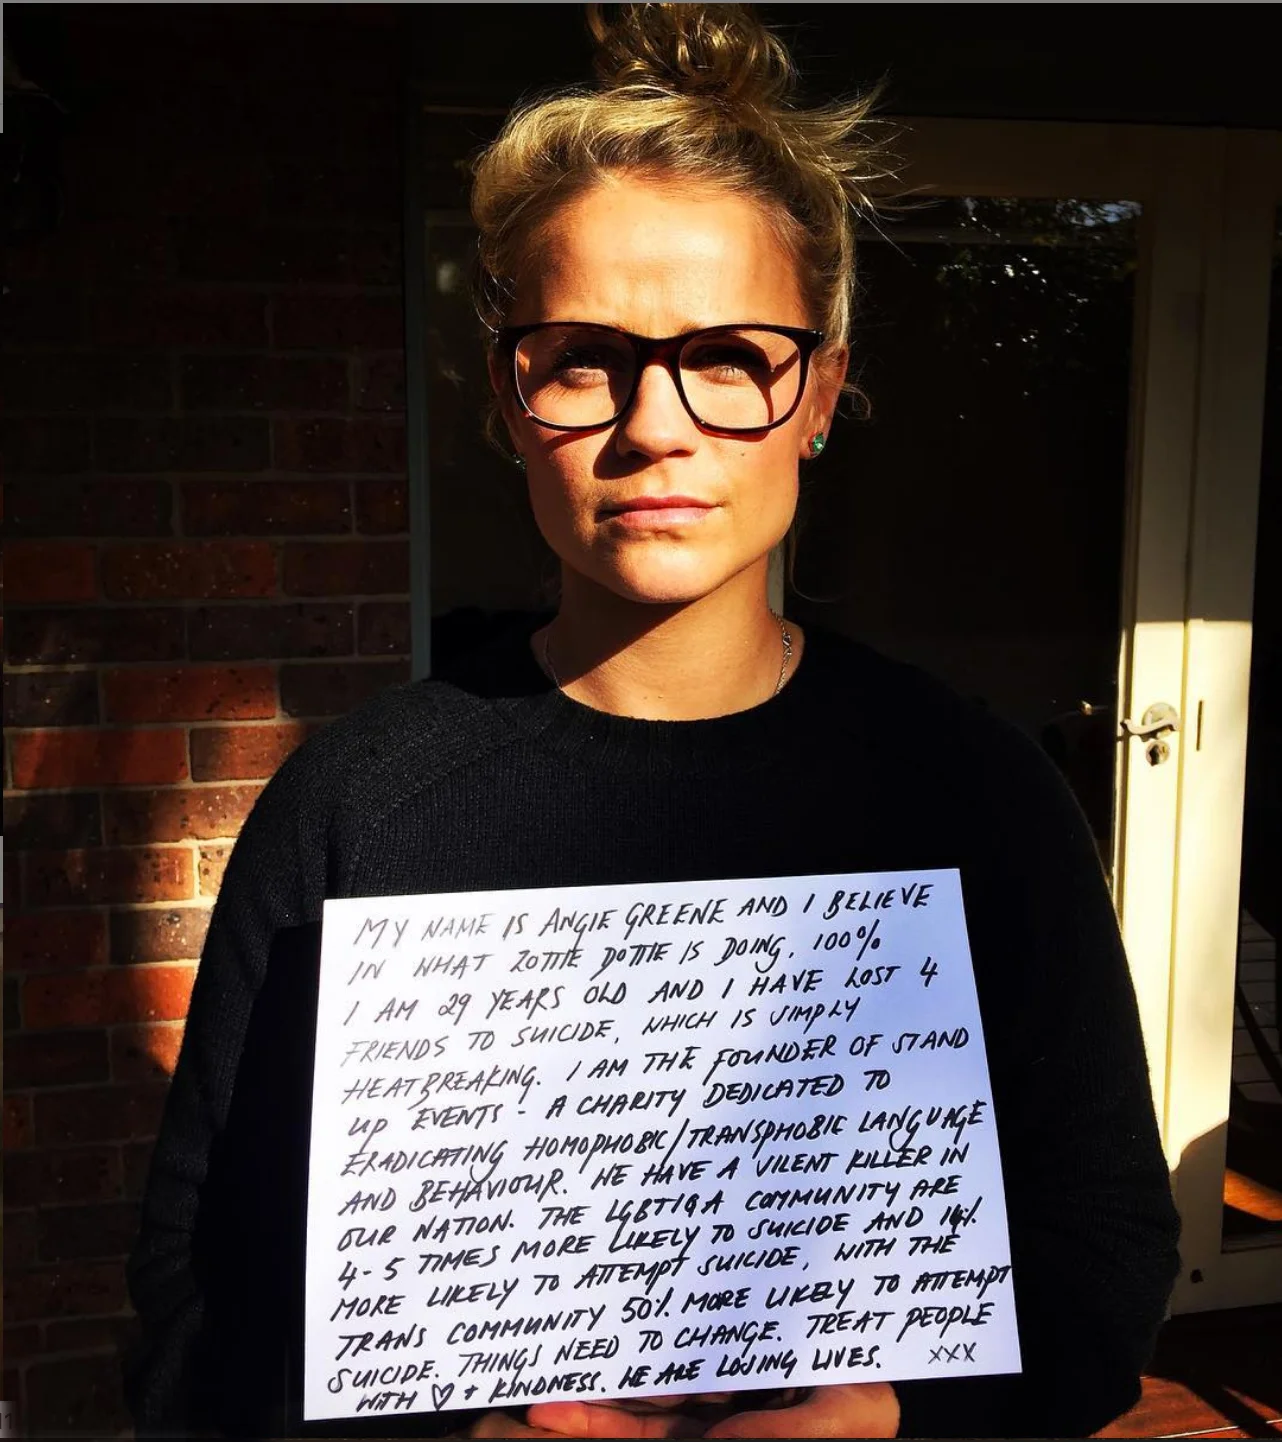 MY NAME IS ANGIE GREENE AND I BELIEVE
IN WHAT ZOTTIE DOTTIE IS DOING, 100%
I AM 29 YEARS OLD AND I HAVE LOST 4
FRIENDS TO SUICIDE, WHICH IS SIMPLY
HEATBREAKING. I AM THE FOUNDER OF STAND
UP EVENTS - A CHARITY DEDICATED TO
ERADICATING HOMOPHOBIC/TRANSPHOBIC LANGUAGE
AND BEHAVIOUR. WE HAVE A VILENT KILLER IN
OUR NATION. THE LGBTIQA COMMUNITY ARE
4-5 TIMES MORE LIKELY TO SUICIDE AND 14%
MORE LIKELY TO ATTEMPT SUICIDE, WITH THE
TRANS COMMUNITY 50% MORE LIKELY TO ATTEMPT
SUICIDE. THINGS NEED TO CHANGE. TREAT PEOPLE
WITH ♡ + KINDNESS. WE ARE LOSING LIVES. XXX